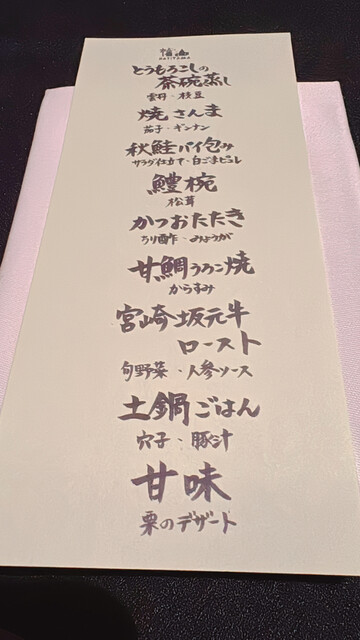 とうもろこしの
茶碗蒸し
雲丹・枝豆
焼さんま
茄子・ギンナン
秋鮭パイ包み
サラダ仕立て・白ごまピュレ
鱧椀
松茸
かつおたたき
ちり酢・みょうが
甘鯛うろこ焼
からすみ
宮崎坂元牛
ロースト
旬野菜・人参ソース
土鍋ごはん
穴子・豚汁
甘味
栗のデザート